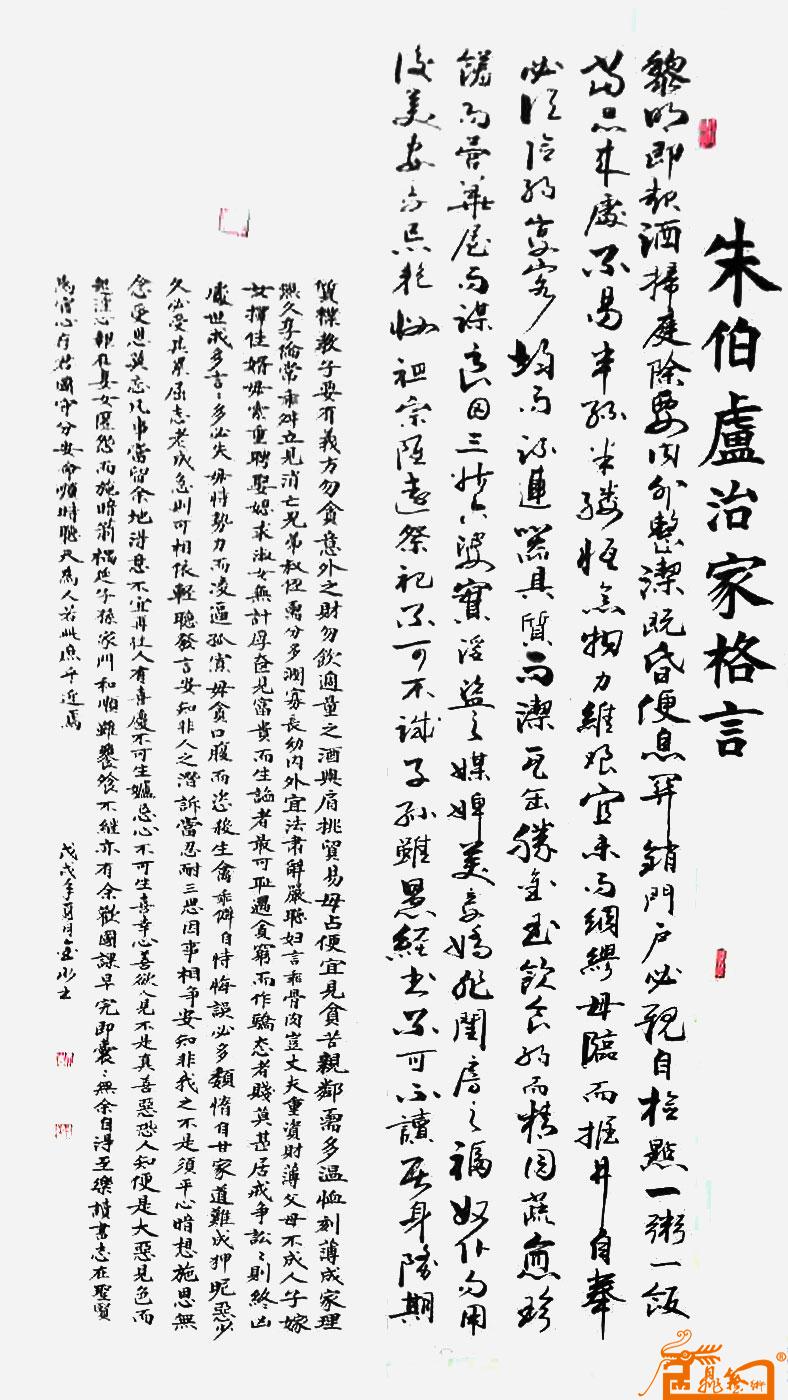 朱伯盧治家格言
黎明即起洒掃庭除要內外整潔既昏便息關鎖門戶必親自檢點一粥一飯
當思來處不易半絲半縷恒念物力維艱宜未雨綢繆毋臨而掘井自奉
必須儉約宴客切勿流連器具質而潔瓦缶勝金玉飲食約而精園蔬愈珍
饈勿營華屋勿謀良田三姑六婆實淫盜之媒婢美妾嬌非閨房之福奴仆勿用
俊美妻妾忌艷妝祖宗雖遠祭祀不可不誠子孫雖愚經書不可不讀居身務期
質樸教子要有義方勿貪意外之財勿飲過量之酒與肩挑貿易毋占便宜見貧苦親鄰需多溫恤刻薄成家理
無久享倫常乖舛立見消亡兄弟叔侄需分多潤寡長幼內外宜法肅辭嚴聽婦言乖骨肉豈丈夫重資財薄父母不成人子嫁
女擇佳婿毋索重聘娶媳求淑女無計厚奩見富貴而生諂者最可恥遇貧窮而作驕態者賤莫甚居戒爭訟〻則終凶
處世戒多言〻多必失毋恃勢力而凌逼孤寡毋貪口腹而恣殺生禽乖僻自恃悔誤必多頹惰自甘家道難成狎昵惡少
久必受其累屈志老成急則可相依輕聽發言安知非人之譖訴當忍耐三思因事相爭安知非我之不是須平心暗想施恩無
念受恩莫忘凡事當留余地得意不宜再往人有喜慶不可生妒忌心不可生喜幸心善欲人見不是真善惡恐人知便是大惡見色而
起淫心報在妻女匿怨而施暗箭禍延子孫家門和順雖饔飧不繼亦有余歡國課早完即囊〻無余自得至樂讀書志在聖賢
為官心存君國守分安命順時聽天為人若此庶乎近焉
戊戌年夏月